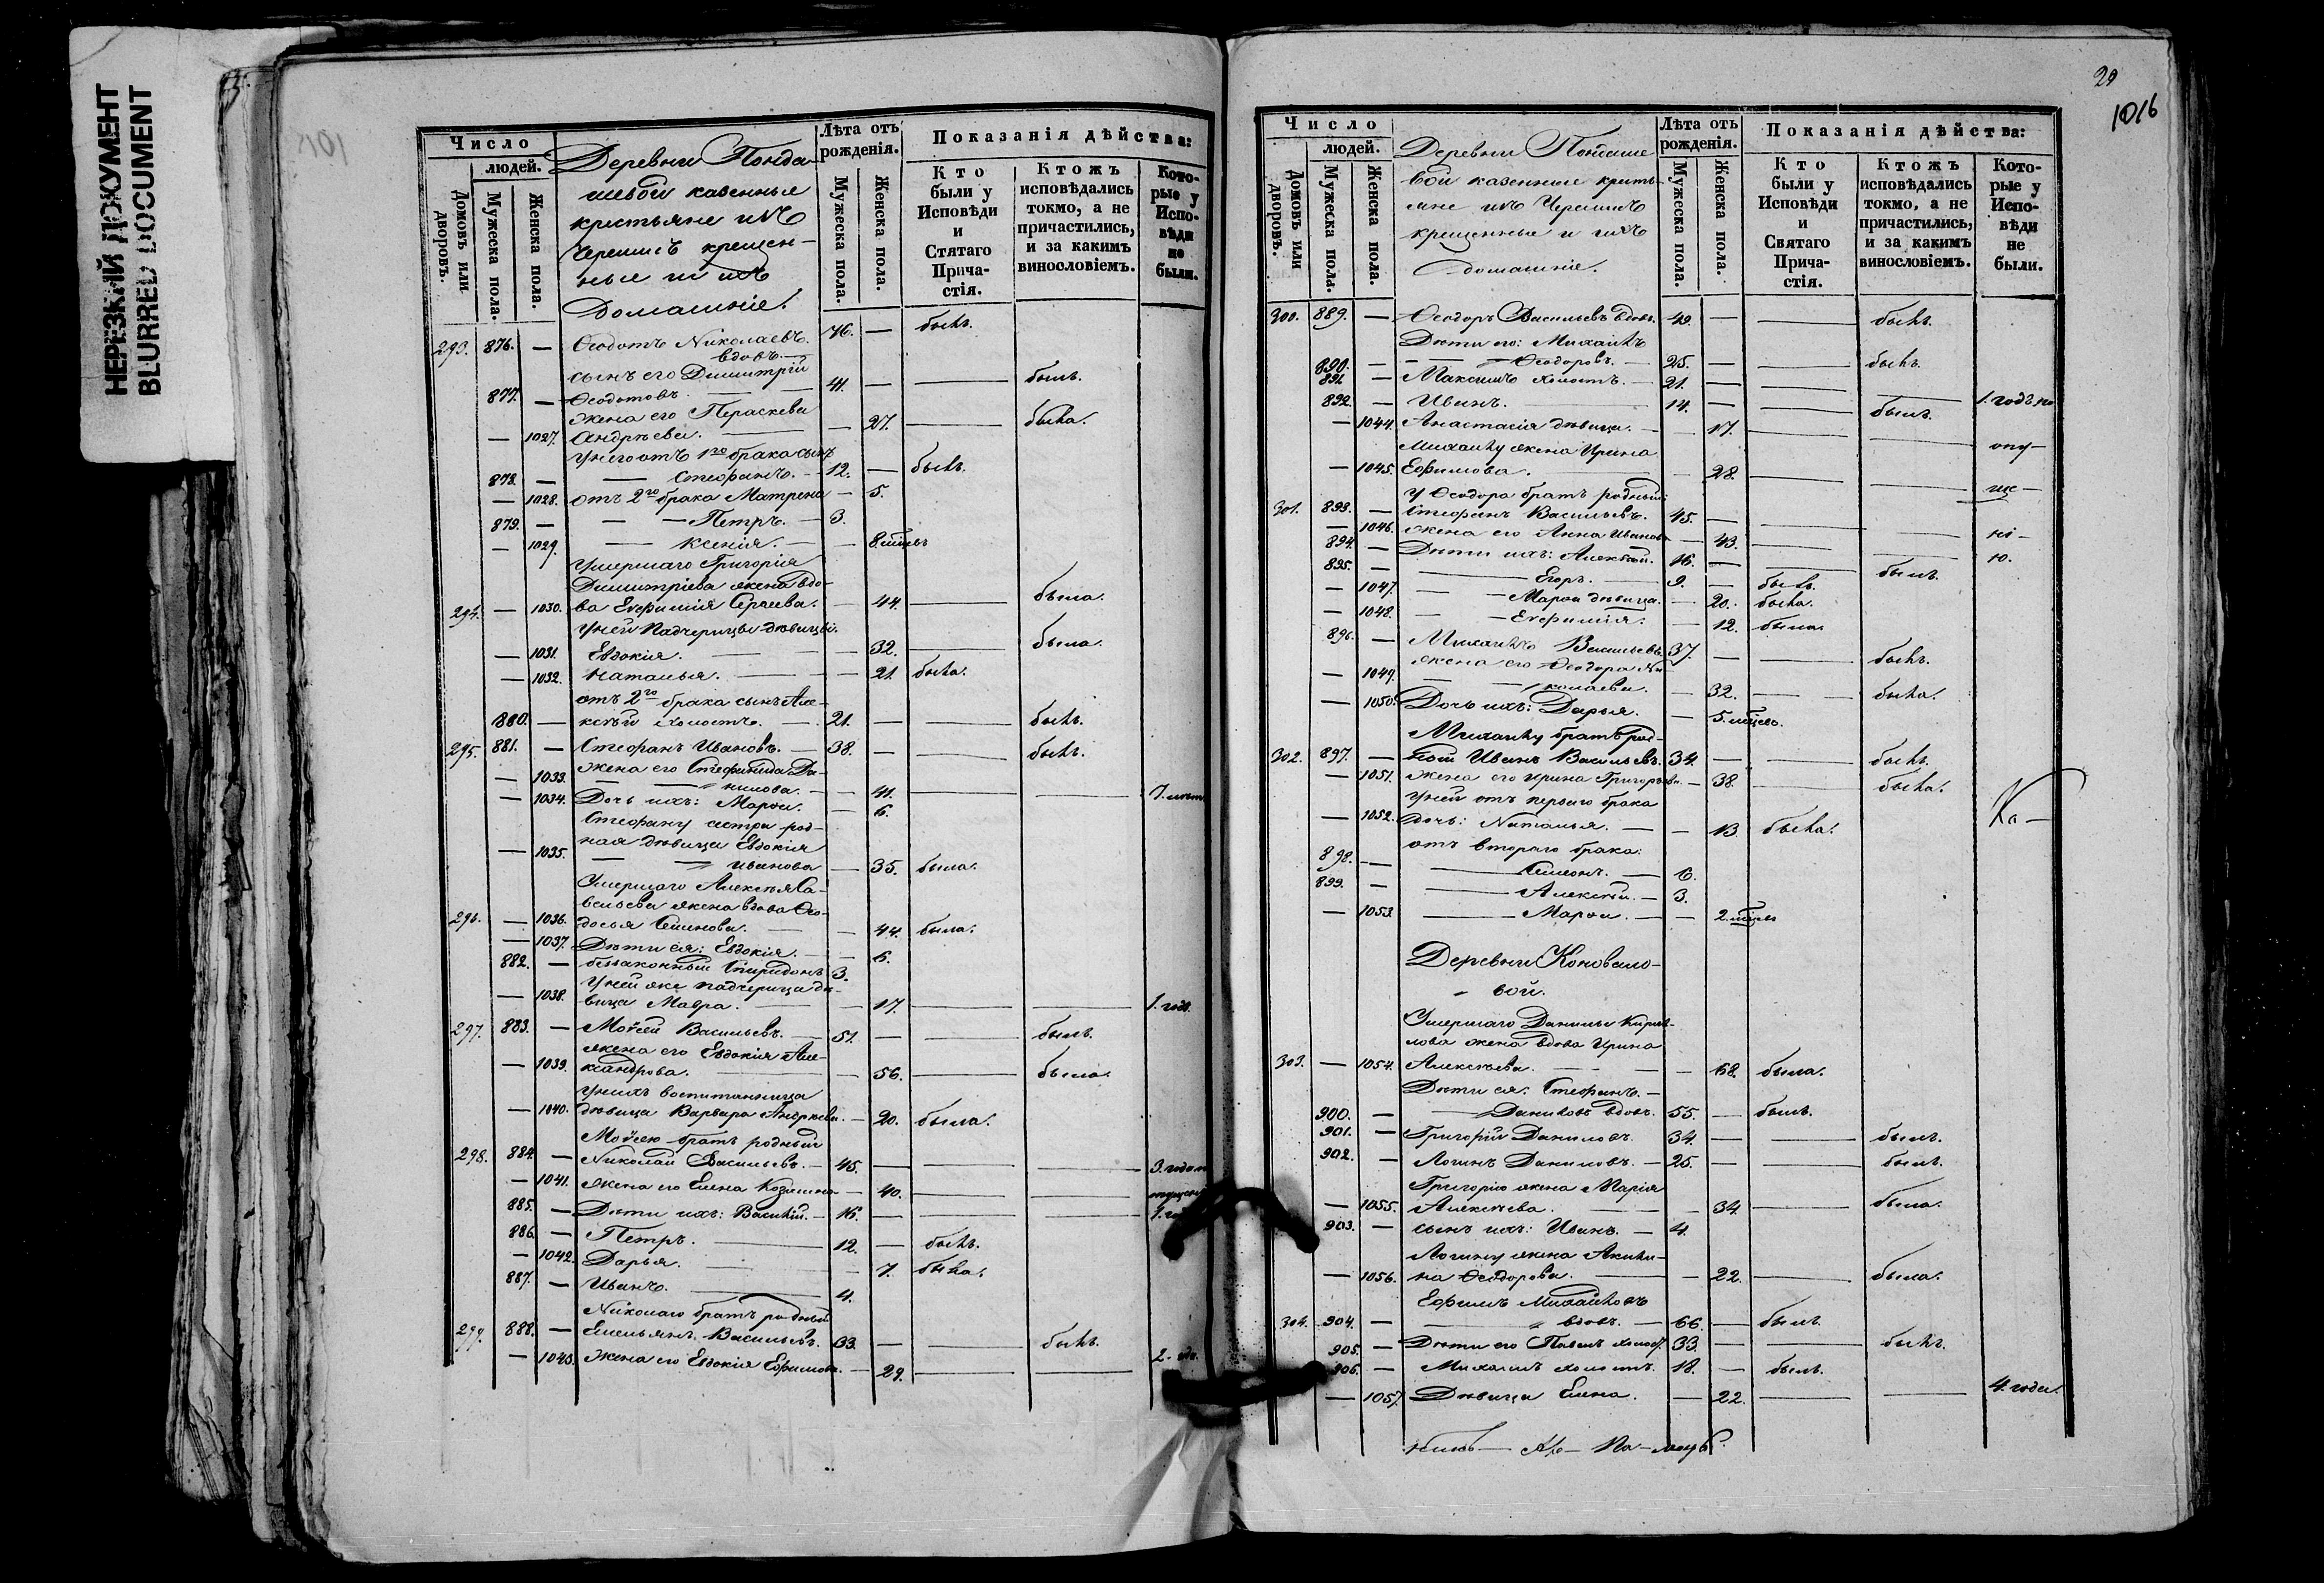 НЕРЕЗКИЙ ДОКУМЕНТ
BLURRED DOCUMENT
Число
людей.
Домовъ или дворовъ.
Мужеска пола.
Женска пола.
Деревни
казенные
крестьяне изъ
Черемисъ крещен-
ные и ихъ
Домашніе.
Лѣта отъ рожденія.
Мужеска пола.
Женска пола.
Показанія дѣйства:
Кто были у Исповѣди и Стятаго Прича-стія.
Ктожъ исповѣдались токмо, а не причастились, и за какимъ винословіемъ.
Кото-рые у Испо-вѣди не были.
293. 876. — Ѳеодотъ Николаевъ. 76. — былъ.
вдовъ.
сынъ его Димитрій
877. — Ѳеодотовъ. 41. — — былъ.
жена его Параскева
— 1027. Андреева. — 27. — была.
У него отъ 1го брака сынъ
878. — Стефанъ. — 12. — былъ.
— 1028. отъ 2го брака Матрена — 5.
879. — — Петръ. — 3.
— 1029. — Ксенія. — — 8. мѣсцъ
Умершаго Григорія
Димитріева жена вдо-
294. — 1030. ва Евфимія Сергеева. — 44. — была.
У ней падчерицы дѣвицы:
— 1031. Евдокія. — 32. — была.
— 1032. Наталья. — 21. была.
отъ 2го брака сынъ Але-
880. — ксѣй холостъ. — 21. — — былъ.
295. 881. — Стефанъ Ивановъ. — 38. — — былъ.
жена его Стефанида Да-
— 1033. нилова. — 41. — — 7. лѣтъ
— 1034. Дочь ихъ: Марѳа. — 6.
Стефану сестра род-
ная дѣвица Евдокія
— 1035. — Иванова — 35. была.
Умершаго Алексѣя Са-
вельева жена вдова Ѳео-
296. — 1036. досья Семенова. — 44. была.
— 1037. Дѣти ея: Евдокія. — 6.
882. — беззаконный Спиридонъ 3.
У ней же падчерица дѣ-
— 1038. вица Мавра. — 17. — — 1. годъ
297. 883. — Моѵсей Васильевъ. — 51. — — былъ.
жена его Евдокія Але-
— 1039. ксандрова. — 56. — была.
У нихъ воспитанница
— 1040. дѣвица Варвара Андреева. — 20. была.
Моѵсею братъ родный
298. 884. — Николай Васильевъ. — 45. — — — 3. года
— 1041. жена его Елена Козмина — 40. — —
885. — Дѣти ихъ: Василій. — 16. — — —
886. — Петръ. — 12. — былъ.
— 1042. Дарья. — 7. была.
887. — Иванъ. — 4.
Николаю братъ родный
299. 888. — Емельянъ Васильевъ. 33. — — былъ.
— 1043. Жена его Евдокія Ефимова. — 29. — — 2. года.
29
1016
Число
людей.
Домовъ или дворовъ.
Мужеска пола.
Женска пола.
Деревни
вой казенные кресть-
яне изъ Черемисъ
крещенные и ихъ
домашніе.
Лѣта отъ рожденія.
Мужеска пола.
Женска пола.
Показанія дѣйства:
Кто были у Исповѣди и Святаго Прича-стія.
Ктожъ исповѣдались токмо, а не причастились, и за какимъ винословіемъ.
Кото-рые у Испо-вѣди не были.
300. 889. — Ѳеодоръ Васильевъ вдовъ. 49. — — былъ.
Дѣти его: Михаилъ
890. — — Ѳеодоровъ. — 25. — — былъ.
891. — Максимъ холостъ. — 21. — — — 1. годъ по
892. — Иванъ. — 14. — — былъ.
— 1044. Анастасія дѣвица. — 17. — — опу-
Михаилу жена Ирина
— 1045. Ефимова. — 28. — — ще-
У Ѳеодора братъ родный:
301. 893. — Стефанъ Васильевъ. 45. — —
— 1046. жена его Анна Иванова — 43. — — ні-
894. — Дѣти ихъ: Алексѣй. 16. — — былъ. ю.
895. — Егоръ. — 9. — былъ.
— 1047. — Марѳа дѣвица. — 20. была.
— 1048. — Евфимія. — 12. была.
896. — Михаилъ Васильевъ 37. — — былъ.
жена его Ѳеодора Ни-
— 1049. — колаева. — 32. — была.
— 1050. Дочь ихъ: Дарья. — 5. мѣсцевъ.
Михаилу братъ род-
302. 897. — ной Иванъ Васильевъ. 34. — — былъ.
— 1051. Жена его Ирина Григорьева. — 38. — была.
У ней отъ перваго брака
— 1052. дочь: Наталья. — 13. была.
отъ втораго брака:
898. — Семенъ. — 6.
899. — Алексѣй. — 3.
— 1053. — Марѳа. — 2. мѣсцъ
Ка —
Деревни Коновало-
вой.
Умершаго Данилы Кирил-
лова жена вдова Ирина
303. — 1054. Алексѣева. — 68. была.
Дѣти ея: Стефанъ —
900. — Даниловъ вдовъ. 55. — былъ.
901. — Григорій Даниловъ. 34. — — былъ.
902. — Логинъ Даниловъ. — 25. — — былъ.
Григорію жена Марія
— 1055. Алексѣева. — 34. — была.
903. — сынъ ихъ: Иванъ. — 4.
Логину жена Акили-
— 1056. на Ѳеодорова. — 22. — была.
Ефимъ Михайловъ
304. 904. — вдовъ. — 66. — былъ.
905. — Дѣти его Павелъ холос. 33. — — былъ.
906. — Михаилъ холостъ. 18. — былъ.
— 1057. Дѣвица Елена. — 22. — — 4. года.